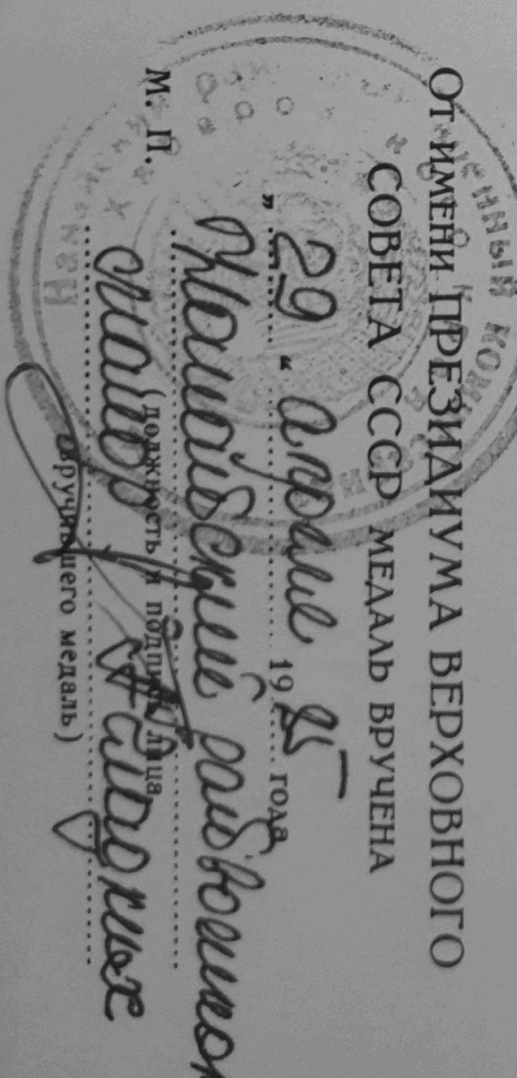 От имени ПРЕЗИДИУМА ВЕРХОВНОГО
СОВЕТА СССР МЕДАЛЬ ВРУЧЕНА
„ 29 “ апреля 19 85 года
райвоенком
М. П.
(должность и подпись лица
майор
вручившего медаль)